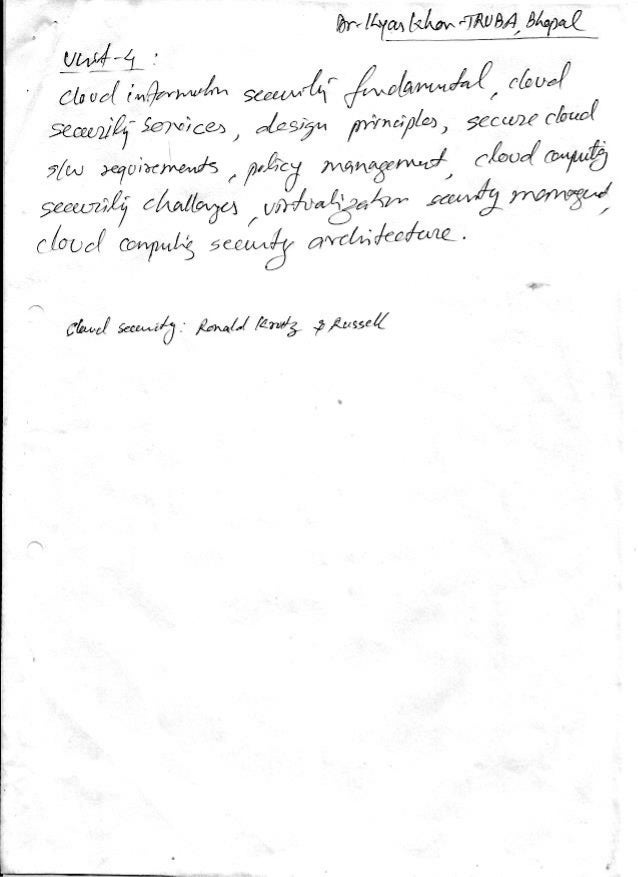 Dr. Ilyas Khan - TRUBA, Bhopal
Unit-4 :
cloud information security fundamental, cloud
security services, design principles, secure cloud
s/w requirements, policy management, cloud computing
security challenges, virtualization security managent,
cloud computing security architecture.
Cloud security: Ronald Krutz & Russell